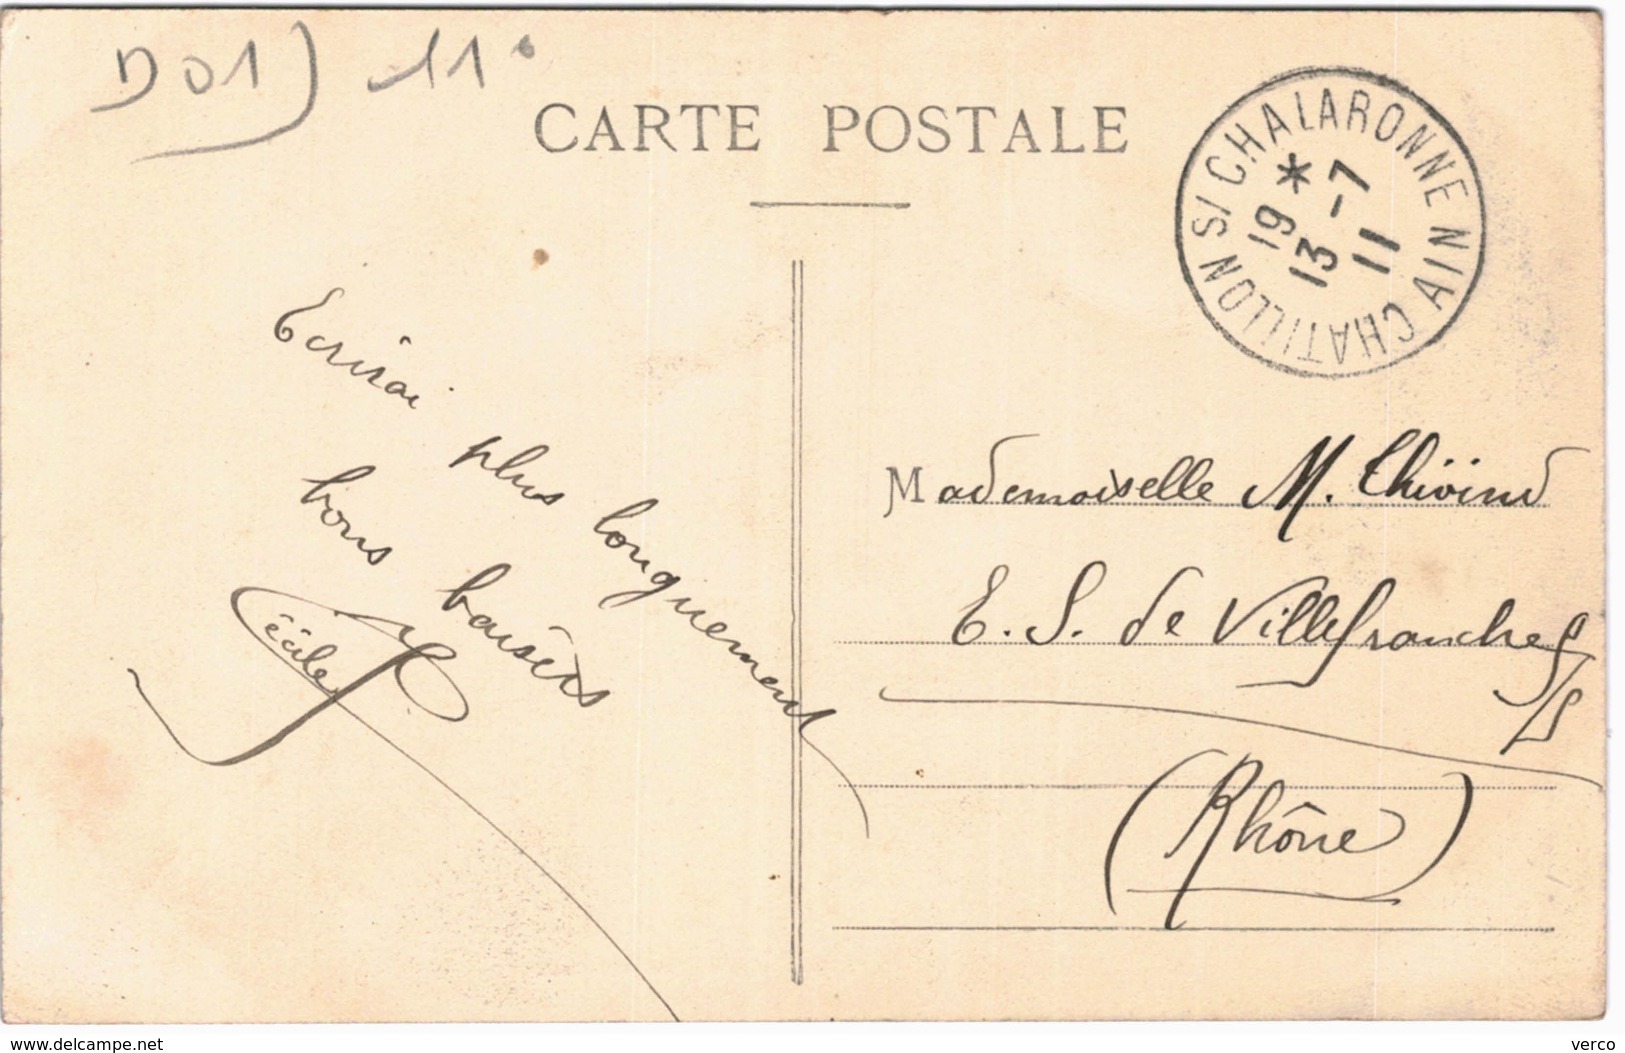 D01) 11°
CARTE POSTALE
CHATILLON S/ CHALARONNE AIN
19 *
13 -7
11
Ecrirai plus longuement
bons baisers
Cécile
Mademoiselle M. Thivind
E. S. de Villefranche s/S
(Rhône)
www.delcampe.net
verco